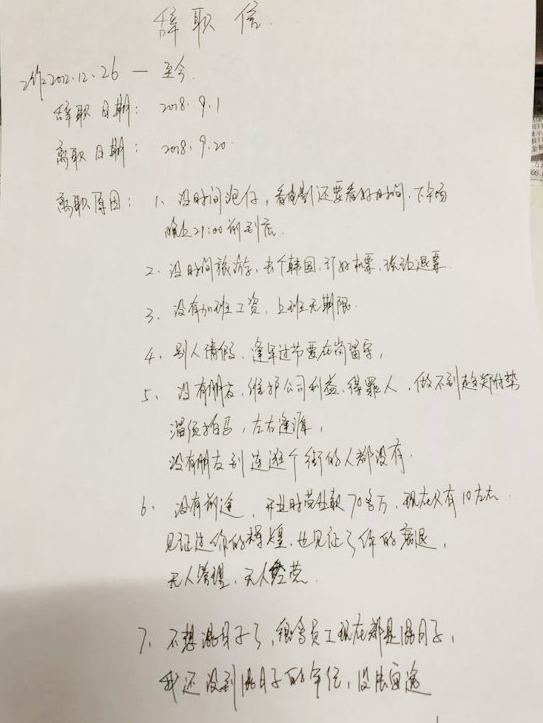 辞职信
工作2012.12.26 — 至今
辞职日期： 2018.9.1
离职日期： 2018.9.20
离职原因： 1、没时间泡仔，看电影还要看好时间，下午场
晚上21:00前到店。
2、没时间旅游，去个韩国，订好机票，该改退票
3、没有加班工资，上班无期限。
4、别人请假，逢年过节要在岗留守，
5、没有朋友，维护公司利益，得罪人，做不到趋炎附势
溜须拍马，左右逢源，
没有朋友到连逛个街的人都没有。
6、没有前途，开业时营业款70多万，现在只有10左右
见证过你的辉煌，也见证了你的衰退，
无人管理，无人经营。
7、不想混日子了，很多员工现在都是混日子，
我还没到混日子的年纪，没法再